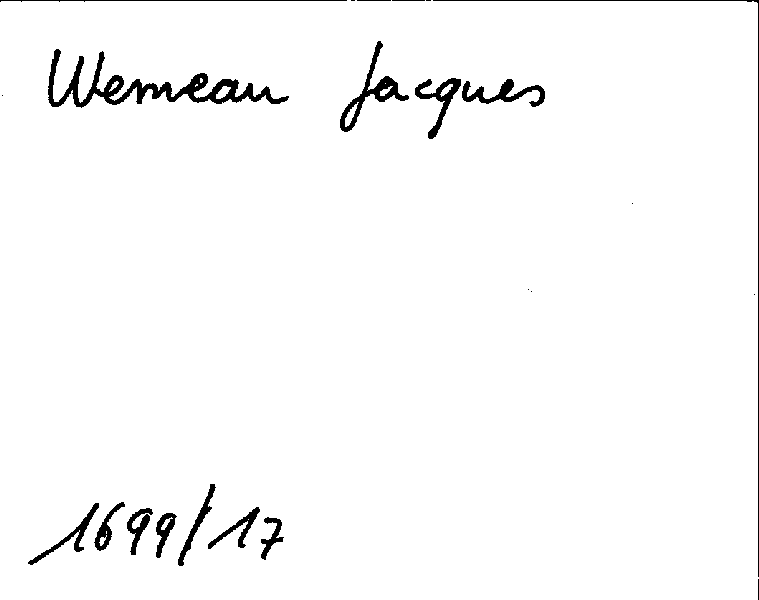 Wemeau Jacques
1699/17